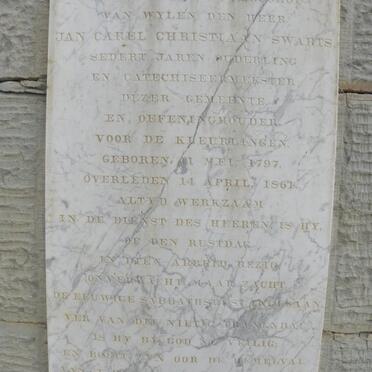 VAN WYLEN DEN HEER
JAN CAREL CHRISTIAAN SWARTS,
SEDERT JAREN OUDERLING
EN CATECHISEERMEESTER
DEZER GEMEENTE,
EN OEFENINGHOUDER
VOOR DE KLEURLINGEN,
GEBOREN 1 MEI 1797,
OVERLEDEN 14 APRIL 1861,
ALTYD WERKZAAM
IN DE DIENST DES HEEREN, IS HY,
OP DEN RUSTDAG
IN DIEN ARBEID BEZIG,
ONVERWACHT MAAR ZACHT
DE EEUWIGE SABBATHSRUST
VER VAN DEN
IS HY BY GOD VEILIG;
EN OOR DE HEMELVAL